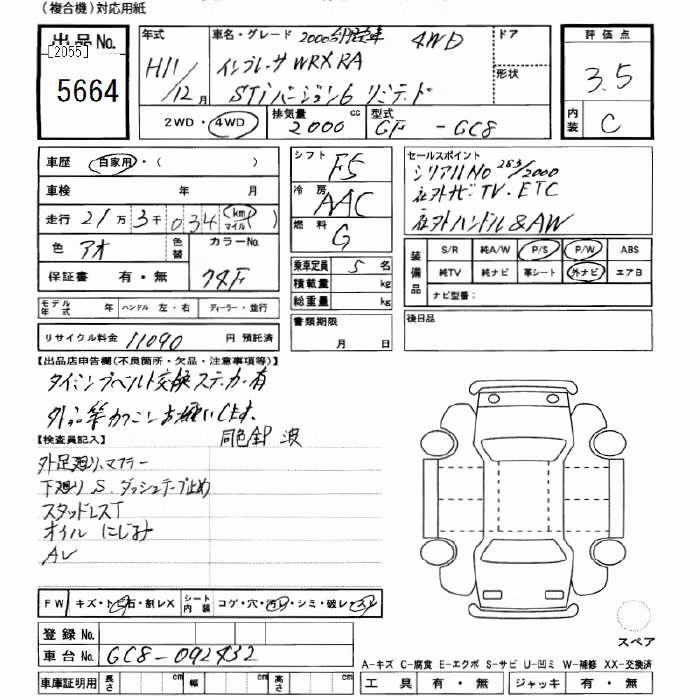 (複合機)対応用紙
出品No. [2055] 5664
年式 H11/12月
車名・グレード 2000台限定車 4WD
インプレッサ WRX RA
STiバージョン6 リミテッド
ドア
形状
評価点 3.5
内装 C
2WD・4WD
排気量 2000 cc
型式 GF-GC8
車歴 自家用・( )
車検 年 月
走行 21万3千034 km マイル
色 アオ 色替
カラーNo. 74F
保証書 有・無
モデル年式 年 ハンドル 左・右 ディーラー・並行
リサイクル料金 11090 円 預託済
シフト F5
冷房 AAC
燃料 G
乗車定員 5名
積載量 kg
総重量 kg
書類期限
月 日
セールスポイント
シリアルNo 283/2000
社外ナビ TV・ETC
社外ハンドル & AW
装備品 S/R 純A/W P/S P/W ABS
純TV 純ナビ 革シート 外ナビ エアB
ナビ型番:
後日品
【出品店申告欄(不良箇所・欠品・注意事項等)】
タイミングベルト交換ステッカー有
外品等カクニンお願いします。
【検査員記入】 同色全 波
外足廻り、マフラー
下廻り S、ダッシュテープ止め
スタッドレスT
オイル にじみ
AW
FW キズ・トビ石・割レX シート内装 コゲ・穴・汚レ・シミ・破レ・スレ
登録No.
車台No. GC8-092432
車庫証明用 長さ cm 幅 cm 高さ cm
スペア
A-キズ C-腐食 E-エクボ S-サビ U-凹ミ W-補修 XX-交換済
工具 有・無 ジャッキ 有・無